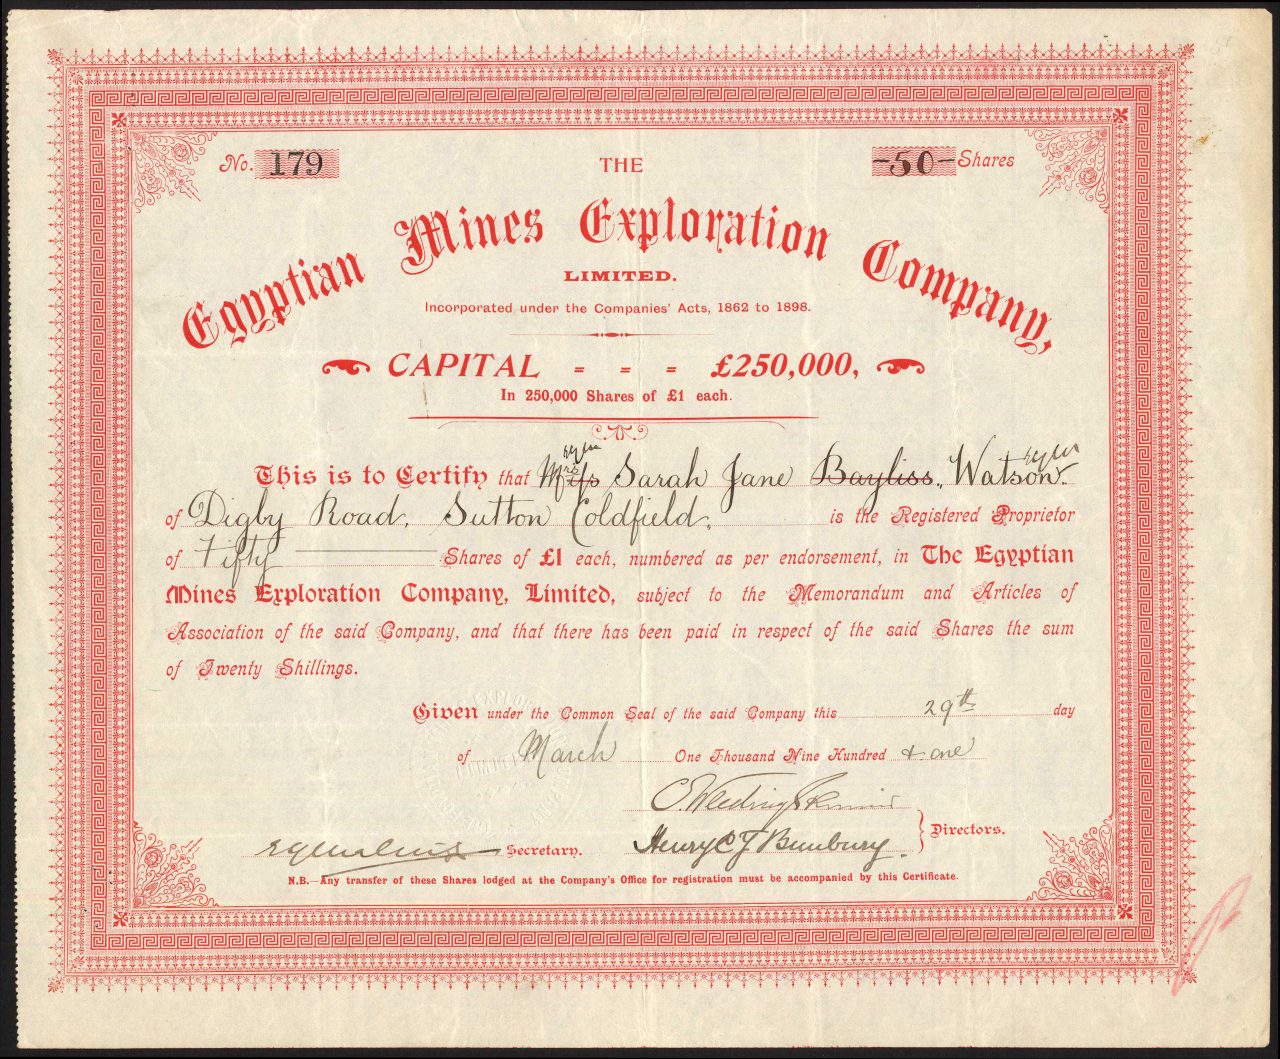 No. 179
THE
-50- Shares
Egyptian Mines Exploration Company,
LIMITED.
Incorporated under the Companies' Acts, 1862 to 1898.
CAPITAL = = = £250,000,
In 250,000 Shares of £1 each.
This is to Certify that Mrs Sarah Jane Bayliss, Watson
of Digby Road, Sutton Coldfield, is the Registered Proprietor
of Fifty Shares of £1 each, numbered as per endorsement, in The Egyptian
Mines Exploration Company, Limited, subject to the Memorandum and Articles of
Association of the said Company, and that there has been paid in respect of the said Shares the sum
of Twenty Shillings.
Given under the Common Seal of the said Company this 29th day
of March One Thousand Nine Hundred & one
Henry C J Bunbury. Directors.
Secretary.
N.B.—Any transfer of these Shares lodged at the Company's Office for registration must be accompanied by this Certificate.